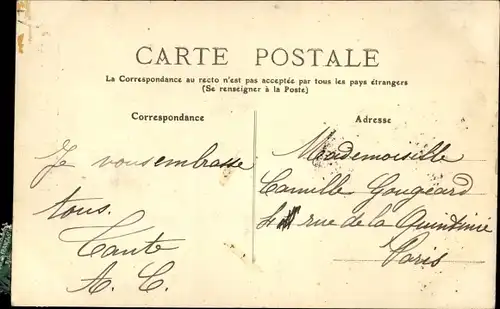 CARTE POSTALE
La Correspondance au recto n'est pas acceptée par tous les pays étrangers
(Se renseigner à la Poste)
Correspondance
Adresse
Je vous embrasse
tous.
Tante
A. C.
Mademoiselle
Camille Gougeard
rue de la Quintinie
Paris